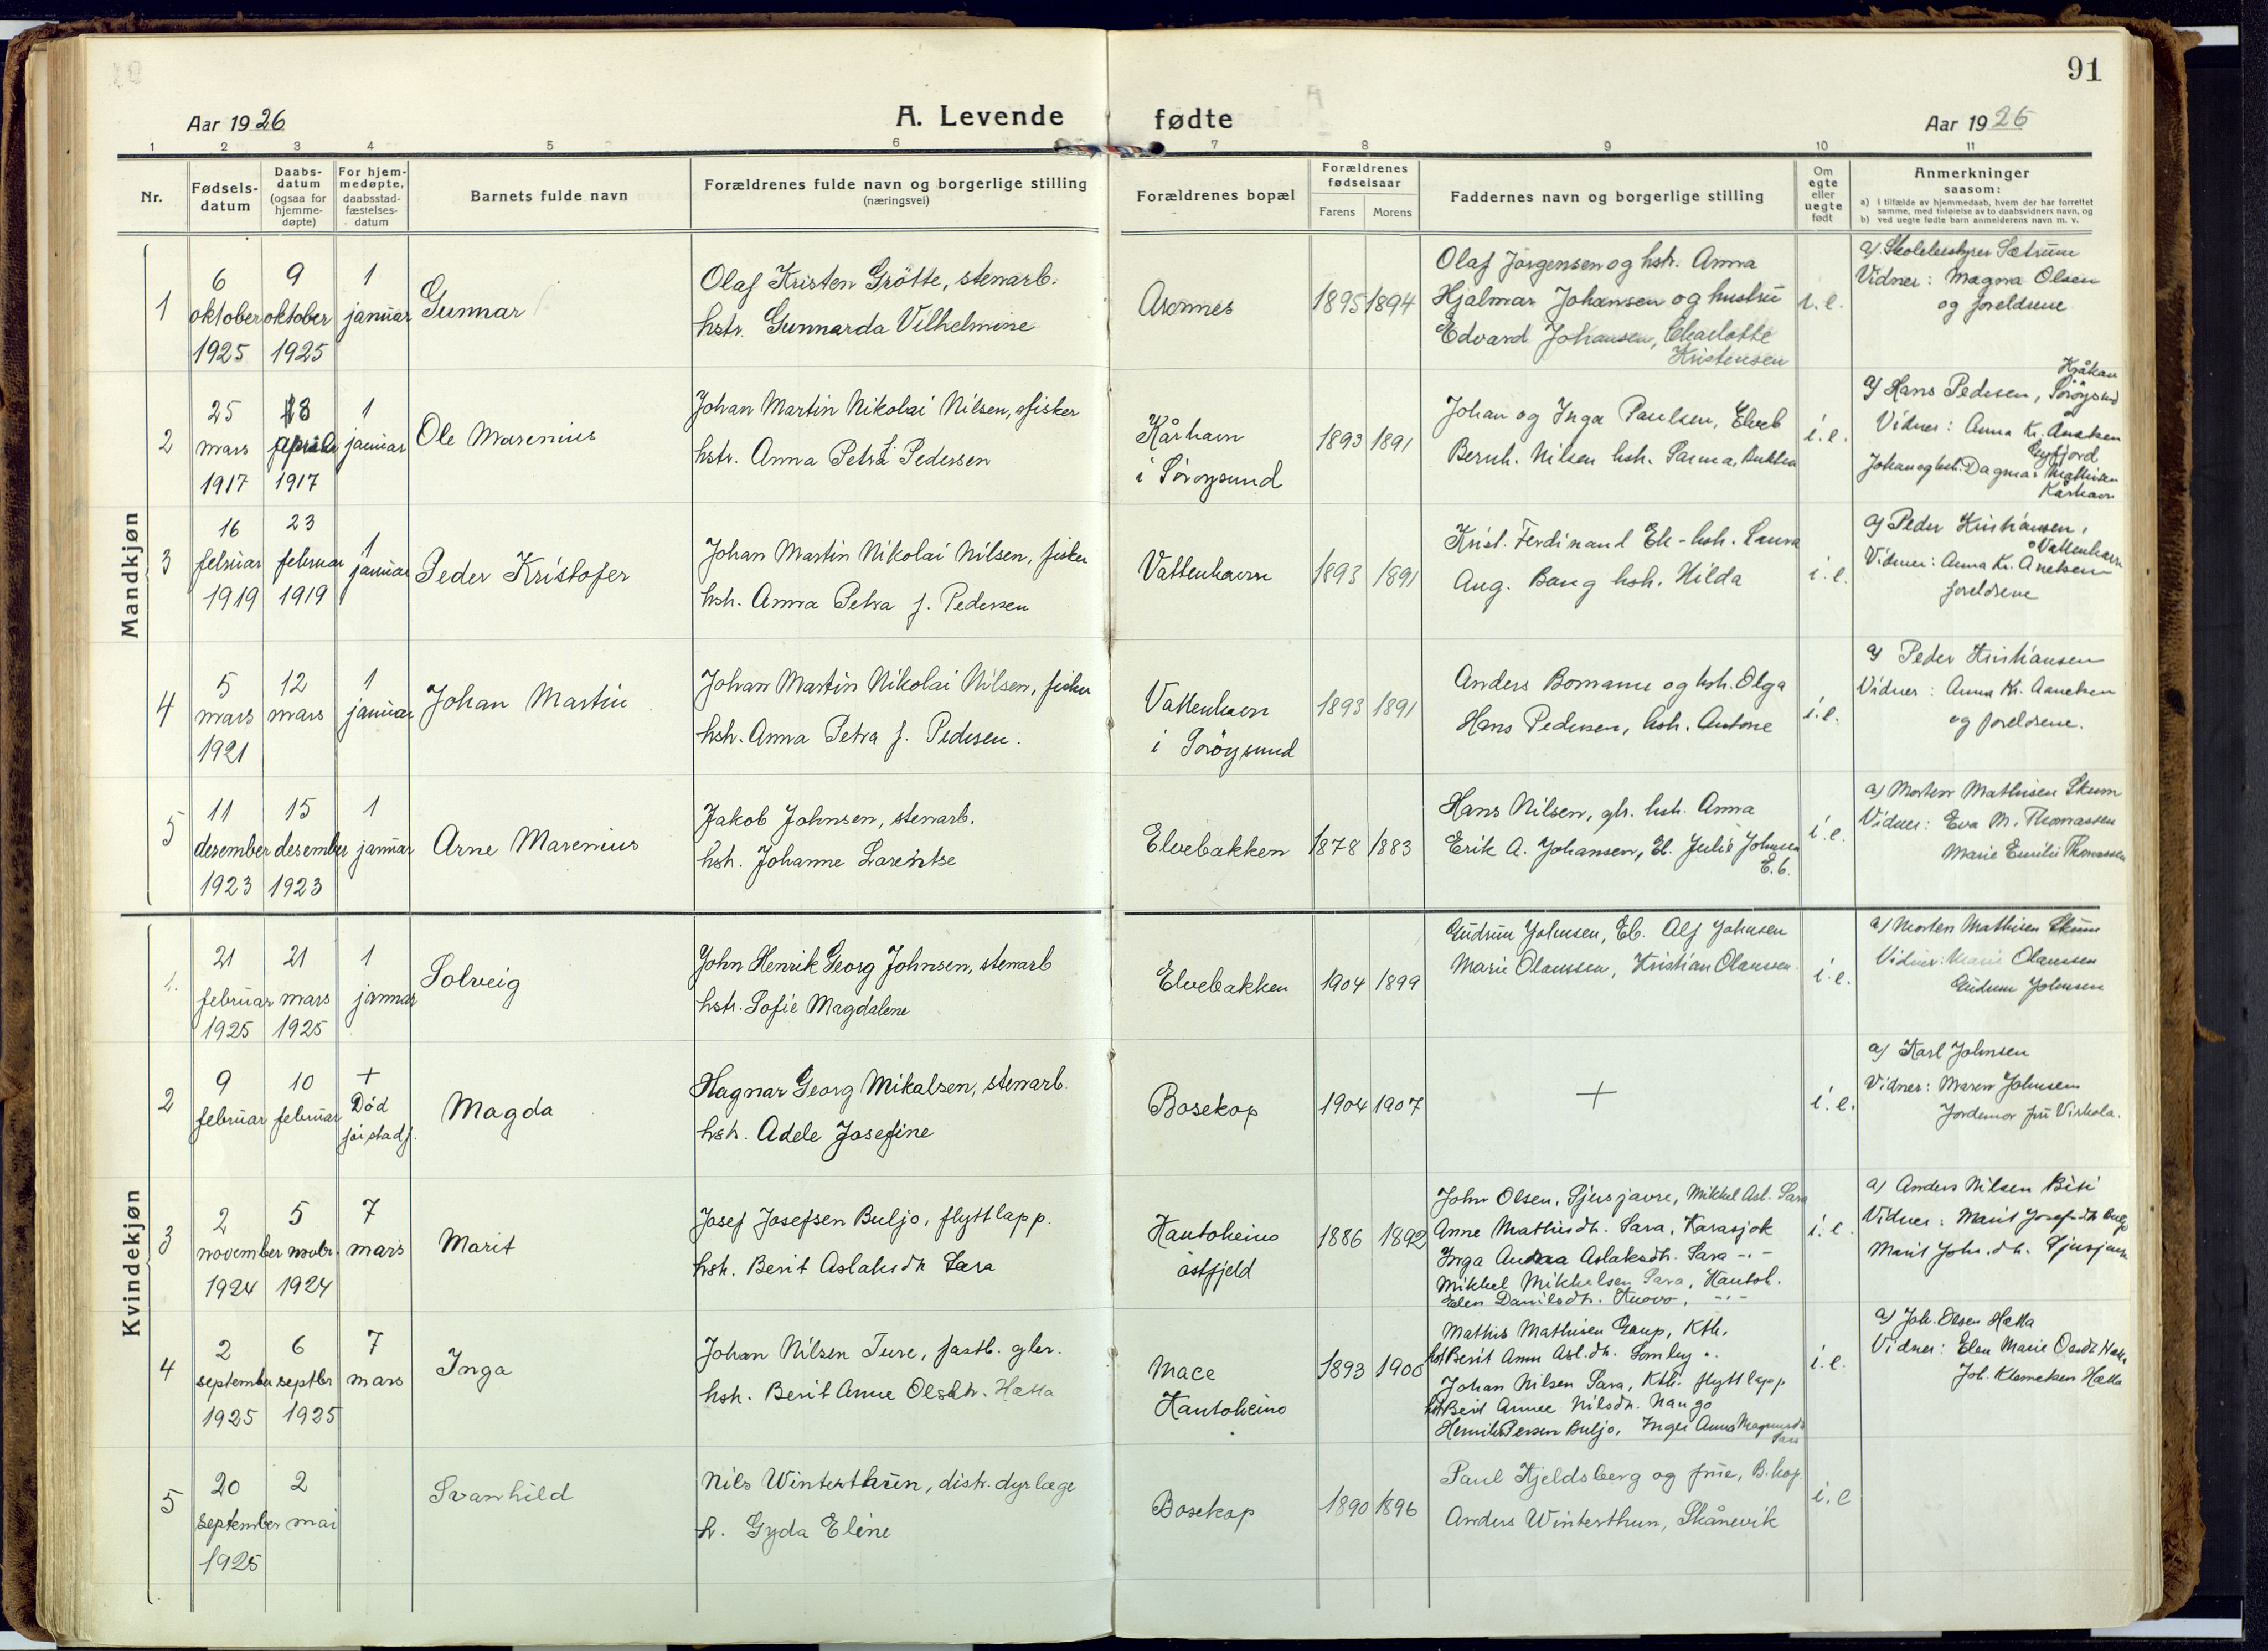 91
Aar 1926
A. Levende fødte
Aar 1926
1 2 3 4 5 6 7 8 9 10 11
Nr.
Fødsels-
datum
Daabs-
datum
(ogsaa for
hjemme-
døpte)
For hjem-
medøpte,
daabsstad-
fæstelses-
datum
Barnets fulde navn
Forældrenes fulde navn og borgerlige stilling
(næringsvei)
Forældrenes bopæl
Forældrenes
fødselsaar
Farens Morens
Faddernes navn og borgerlige stilling
Om
egte
eller
uegte
født
Anmerkninger
saasom:
a) i tilfælde av hjemmedaab, hvem der har forrettet
samme, med tilføielse av to daabsvidners navn, og
b) ved uegte fødte barn anmelderens navn m. v.
Mandkjøn
1
6
oktober
1925
9
oktober
1925
1
januar
Gunnar
Olaf Kristen Grötte, stenarb.
hstr. Gunnarda Vilhelmine
Aronnes
1895 1894
Olaf Jørgensen og hstr. Anna
Hjalmar Johansen og hustru
Edvard Johansen, Charlotte
Kristensen
i. e.
a) Skolebestyrer Sætrum
Vidner: Magna Olsen
og foreldrene
2
25
mars
1917
8
april
1917
1
januar
Ole Marenius
Johan Martin Nikolai Nilsen, fisker
hstr. Anna Petra f. Pedersen
Kårhavn
i Sörøysund
1893 1891
Johan og Inga Paulsen, Elveb
Bernh. Nilsen hstr. Sanna, Bukten
i. e.
Kråkan
a) Hans Pedersen, Sörøysund
Vidner: Anna Kr. Anetsen
Johan og hst. Dagmar Mathisen
Kårhavn
3
16
februar
1919
23
februar
1919
1
januar
Peder Kristofer
Johan Martin Nikolai Nilsen, fisker
hstr. Anna Petra f. Pedersen
Vattenhavn
1893 1891
Krist. Ferdinand Ek - hstr. Laura
Aug. Bang hstr. Hilda
i. e.
a) Peder Kristiansen,
Vattenhavn
Vidner: Anna Kr. Anetsen
foreldrene
4
5
mars
1921
12
mars
1
januar
Johan Martin
Johan Martin Nikolai Nilsen, fisker
hstr. Anna Petra f. Pedersen.
Vattenhavn
i Sörøysund
1893 1891
Anders Bomann og hstr. Olga
Hans Pedersen, hstr. Antone
i. e.
a) Peder Kristiansen
Vidner: Anna Kr. Aanetsen
og foreldrene.
5
11
desember
1923
15
desember
1923
1
januar
Arne Marenius
Jakob Johnsen, stenarb.
hstr. Johanne Larentse
Elvebakken
1878 1883
Hans Nilsen, gb. hstr. Anna
Erik A. Johansen, El. Julie Johnsen
E.b.
i. e.
a) Morten Mathisen Skum
Vidner: Eva M. Thomassen
Marie Emilie Thomassen
Kvindekjøn
1.
21
februar
1925
21
mars
1925
1
januar
Solveig
John Henrik Georg Johnsen, stenarb
hstr. Sofie Magdalene
Elvebakken
1904 1899
Gudrun Johnsen, Eb. Alf Johnsen
Marie Olaussen, Kristian Olaussen
i. e.
a) Morten Mathisen Skum
Vidner: Marie Olaussen
Gudrun Johnsen
2
9
februar
10
februar
+
Död
før stadf.
Magda
Hagnar Georg Mikalsen, stenarb.
hstr. Adele Josefine
Bosekop
1904 1907
+
i. e.
a) Karl Johnsen
Vidner: Maren Johnsen
Jordmor fru Virkola.
3
2
november
1924
5
novbr.
1924
7
mars
Marit
Josef Josefsen Buljo, flyttlapp.
hstr. Berit Aslaksdtr Sara
Kautokeino
östfjeld
1886 1892
John Olsen, Sjusjavre, Mikkel Asl. Sara
Anne Mathisdtr. Sara, Karasjok
Inga Andaa Aslaksdtr. Sara -"-
Mikkel Mikkelsen Sara, Kautok.
Elen Danilsdtr. Kuovo, -"-
i. e.
a) Anders Nilsen Biti
Vidner: Marit Josefsdtr Buljo
Marit Joh.dtr. Sjusjavre
4
2
september
1925
6
septbr
1925
7
mars
Inga
Johan Nilsen Ture, fastb. gbr.
hstr. Berit Anne Olsdtr. Hætta
Mace
Kautokeino
1893 1900
Mathis Mathisen Gaup, Ktk.
hst Berit Anna Asl.dtr. Somby "
Johan Nilsen Sara, Ktk. flyttlapp
hst Berit Anne Nilsdtr. Nango
Henrik Persen Buljo, Inger Anna Magnusdtr
Sara
i. e.
a) Joh. Olsen Hætta
Vidner: Elen Marie Olsdtr Hætta
Joh. Klemetsen Hætta
5
20
september
1925
2
mai
Svanhild
Nils Winterthun, distr. dyrlæge
h. Gyda Eline
Bosekop
1890 1896
Paul Kjeldsberg og frue, B.kop
Anders Winterthun, Skånevik
i. e